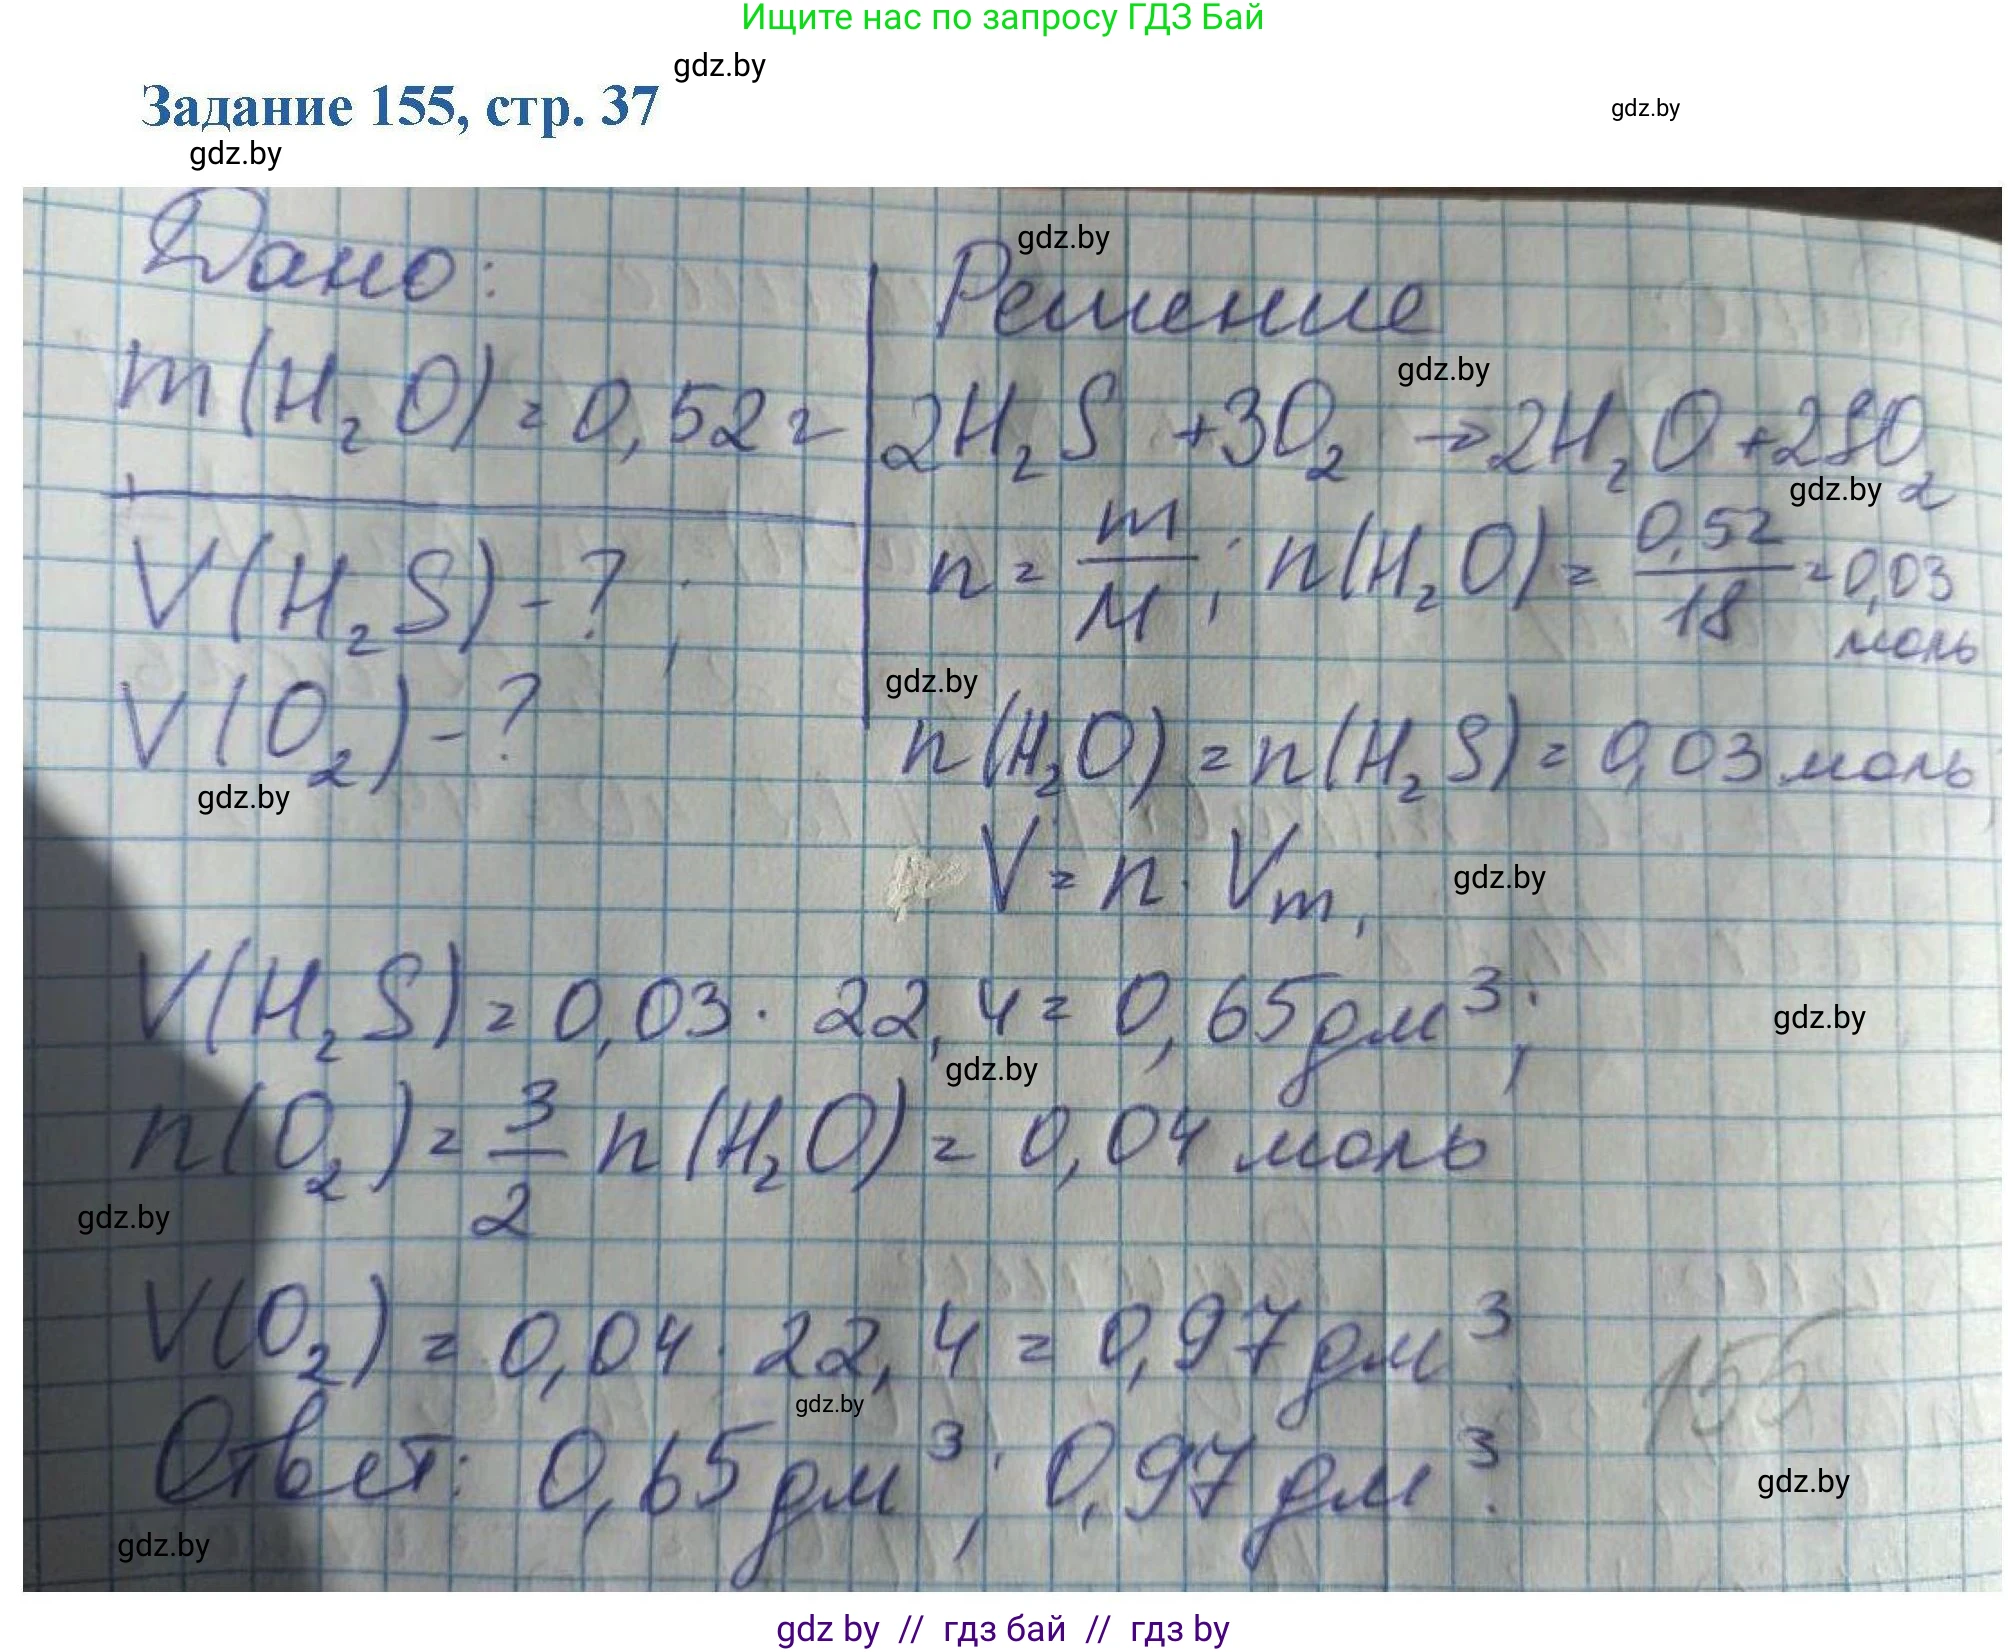 Ищите нас по запросу ГДЗ Бай
gdz.by
Задание 155, стр. 37
gdz.by
gdz.by
Дано:
m(H₂O) = 0,52 г
V(H₂S) - ? ;
V(O₂) - ?
gdz.by
gdz.by
Решение
gdz.by
2H₂S + 3O₂ → 2H₂O + 2SO₂
gdz.by
n = m/M ; n(H₂O) = 0,52/18 = 0,03 моль
gdz.by
n(H₂O) = n(H₂S) = 0,03 моль,
V = n · Vm,
gdz.by
V(H₂S) = 0,03 · 22,4 = 0,65 дм³;
gdz.by
gdz.by
n(O₂) = 3/2 n(H₂O) = 0,04 моль
gdz.by
V(O₂) = 0,04 · 22,4 = 0,97 дм³
gdz.by
155
Ответ: 0,65 дм³; 0,97 дм³.
gdz.by
gdz.by
gdz by // гдз бай // гдз by